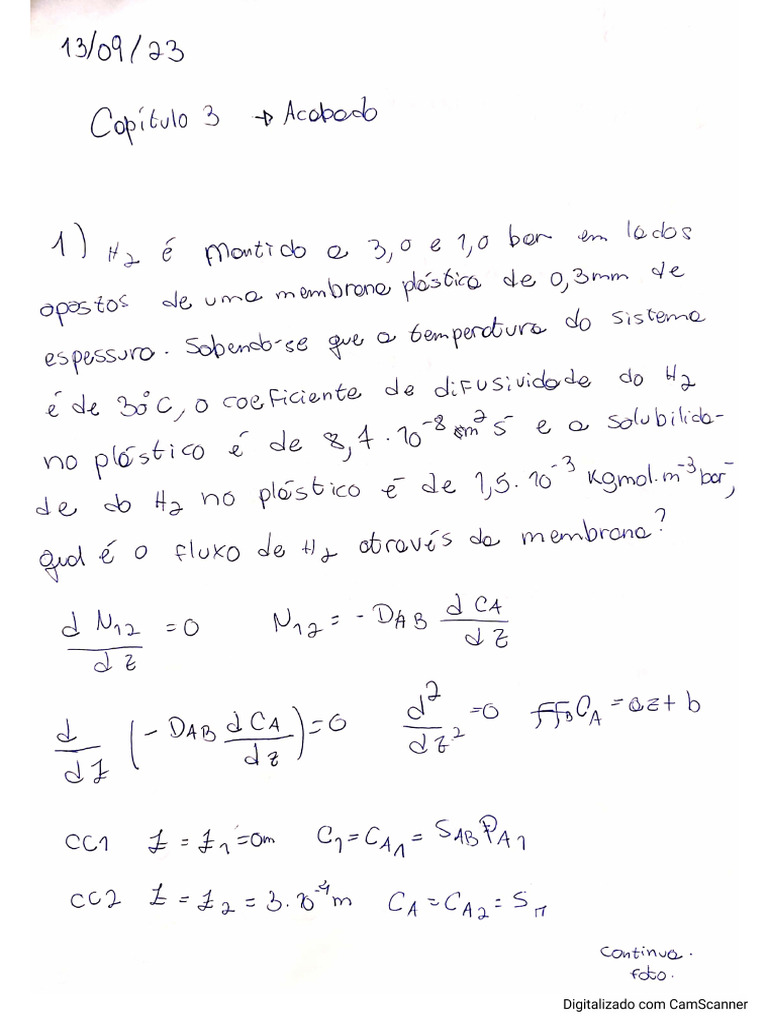 13/09/23
Capítulo 3 → Acabado
1) H2 é mantido a 3,0 e 1,0 bar em lados
opostos de uma membrana plástica de 0,3mm de
espessura. Sabendo-se que a temperatura do sistema
é de 30°C, o coeficiente de difusividade do H2
no plástico é de 8,7·10⁻⁸ m²s⁻ e a solubilida-
de do H2 no plástico é de 1,5·10⁻³ Kgmol·m⁻³bar⁻,
qual é o fluxo de H2 através da membrana?
d N12/dz = 0    N12 = - DAB d CA/dz
d/dz (- DAB d CA/dz) = 0    d²/dz² = 0    CA = az + b
CC1 z = z1 = 0m    C1 = CA1 = SAB PA1
CC2 z = z2 = 3·10⁻⁴ m    CA = CA2 = S
Continua.
foto.
Digitalizado com CamScanner